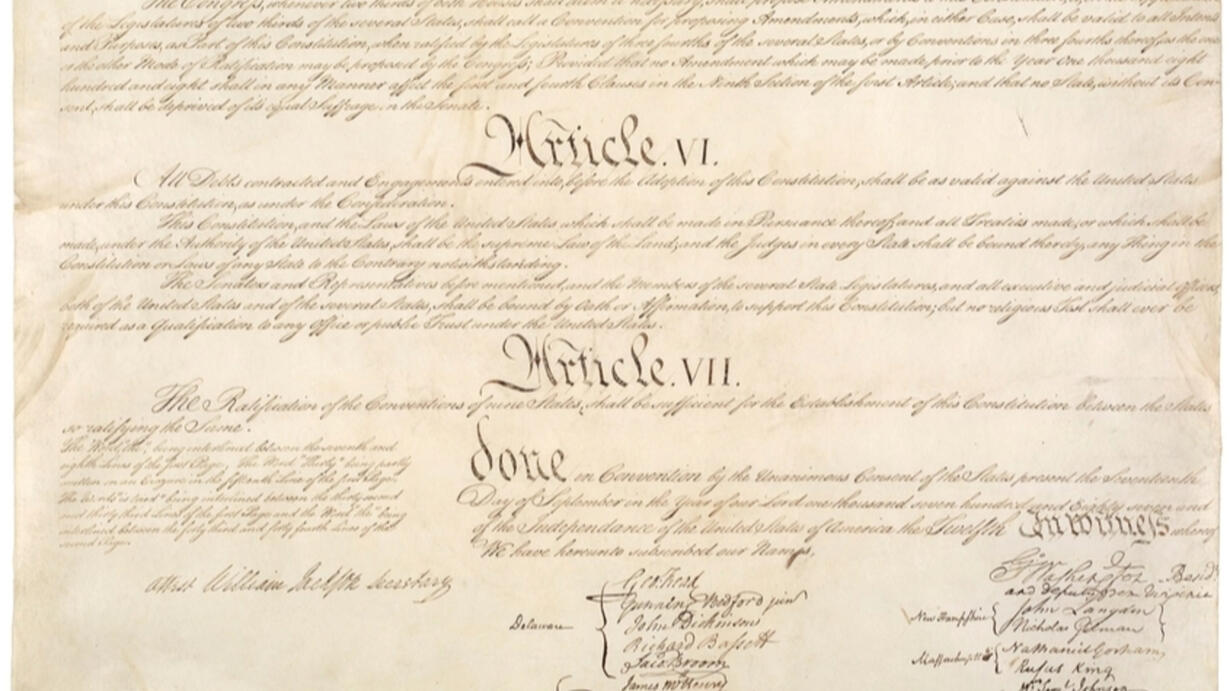 The Congress, whenever two thirds of both Houses shall deem it necessary, shall propose Amendments to this Constitution, or, on the Application
of the Legislatures of two thirds of the several States, shall call a Convention for proposing Amendments, which, in either Case, shall be valid to all Intents
and Purposes, as Part of this Constitution, when ratified by the Legislatures of three fourths of the several States, or by Conventions in three fourths thereof, as the one
or the other Mode of Ratification may be proposed by the Congress; Provided that no Amendment which may be made prior to the Year One thousand eight
hundred and eight shall in any Manner affect the first and fourth Clauses in the Ninth Section of the first Article; and that no State, without its Con-
sent, shall be deprived of its equal Suffrage in the Senate.
Article. VI.
All Debts contracted and Engagements entered into, before the Adoption of this Constitution, shall be as valid against the United States
under this Constitution, as under the Confederation.
This Constitution, and the Laws of the United States which shall be made in Pursuance thereof; and all Treaties made, or which shall be
made, under the Authority of the United States, shall be the supreme Law of the Land; and the Judges in every State shall be bound thereby, any Thing in the
Constitution or Laws of any State to the Contrary notwithstanding.
The Senators and Representatives before mentioned, and the Members of the several State Legislatures, and all executive and judicial Officers,
both of the United States and of the several States, shall be bound by Oath or Affirmation, to support this Constitution; but no religious Test shall ever be
required as a Qualification to any Office or public Trust under the United States.
Article. VII.
The Ratification of the Conventions of nine States, shall be sufficient for the Establishment of this Constitution between the States
so ratifying the Same.
The Word, "the", being interlined between the seventh and
eighth Lines of the first Page, The Word "Thirty" being partly
written on an Erazure in the fifteenth Line of the first Page,
The Words "is tried" being interlined between the thirty second
and thirty third Lines of the first Page and the Word "the" being
interlined between the forty third and forty fourth Lines of the
second Page.
done in Convention by the Unanimous Consent of the States present the Seventeenth
Day of September in the Year of our Lord one thousand seven hundred and Eighty seven and
of the Independance of the United States of America the Twelfth In witness whereof
We have hereunto subscribed our Names,
attest William Jackson Secretary
Go: Washington Presidt
and deputy from Virginia
Delaware
Geo: Read
Gunning Bedford jun
John Dickinson
Richard Bassett
Jaco: Broom
James McHenry
New Hampshire
John Langdon
Nicholas Gilman
Massachusetts
Nathaniel Gorham
Rufus King
Wm Saml Johnson